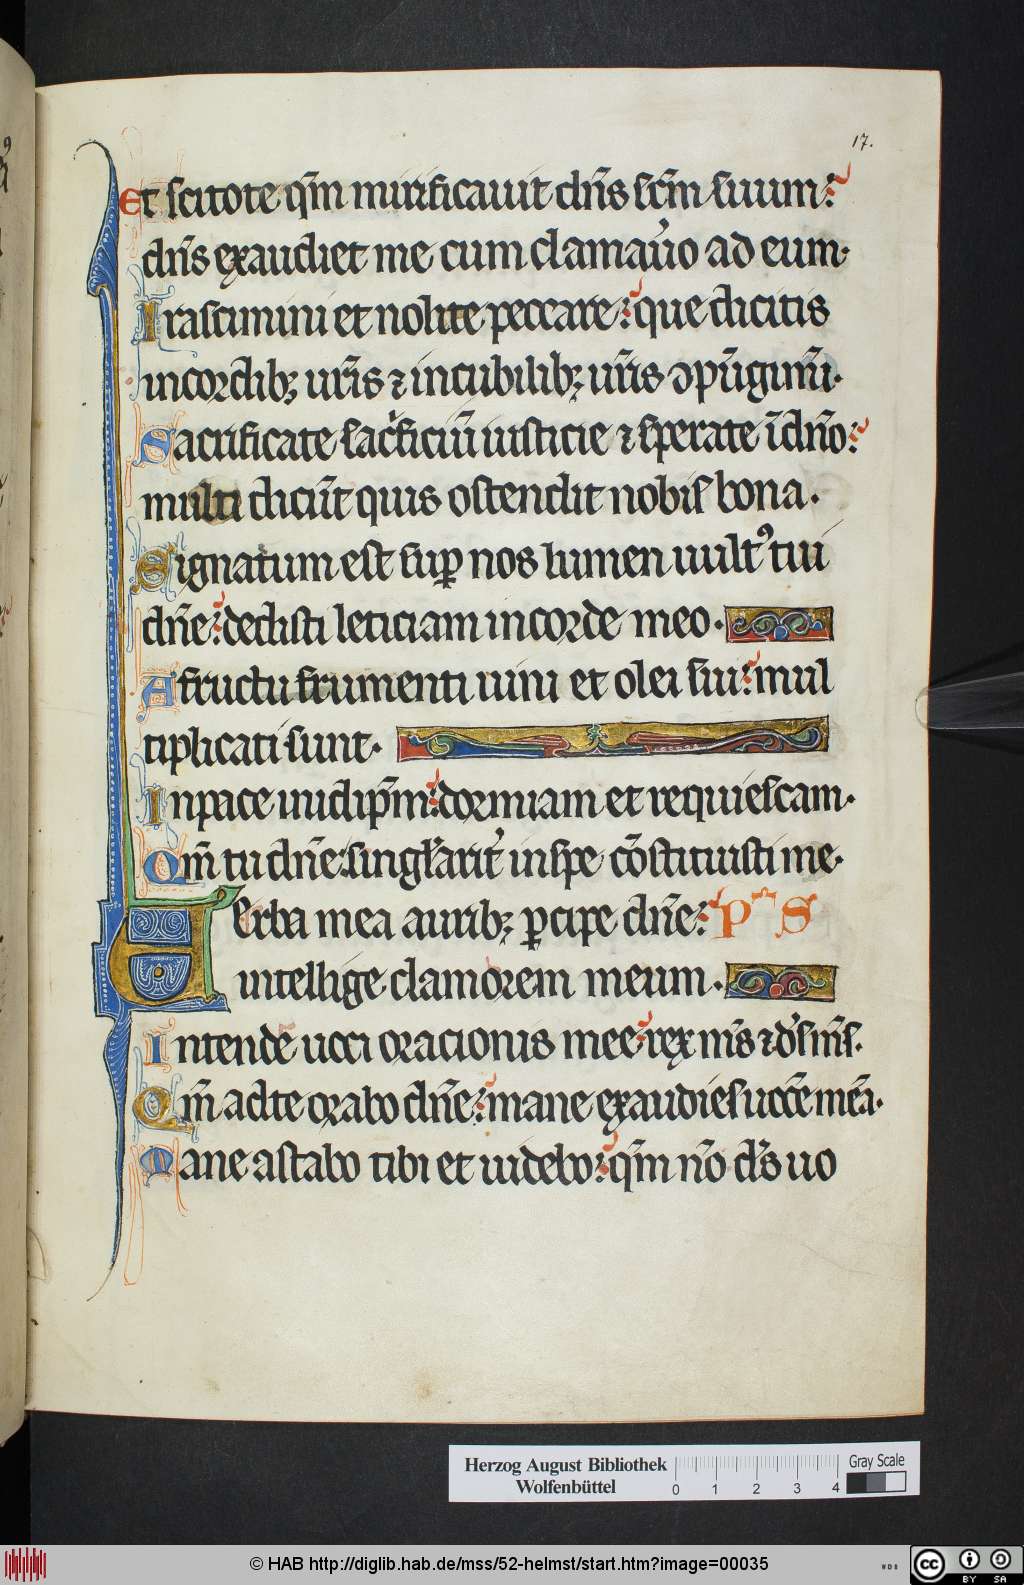 17.
Et scitote qm̄ mirificauit dn̄s scm̄ suum:
dn̄s exaudiet me cum clamau̓o ad eum·
Irascimini et nolite peccare: que dicitis
incordib; ur̄is ⁊ incubilib; ur̄is ↄpūgimī·
Sacrificate sac̓ficiū iusticie ⁊ sperate ī dn̄o:
multi dicūt quis ostendit nobis bona·
Signatum est suꝑ nos lumen uultꝰ tui
dn̄e: dedisti leticiam incorde meo·
A fructu frumenti uini et olei sui: mul
tiplicati sunt·
Inpace inidip̄m: dormiam et requiescam·
Qm̄ tu dn̄e: singlarit̓ inspe cōstituisti me·
Uerba mea aurib; ꝑcipe dn̄e: Pˢ
intellige clamorem meum·
Intende uoci orationis mee: rex m̄s ⁊ ds̄ m̄s·
Qm̄ adte orabo dn̄e: mane exaudies uocē meā·
Mane astabo tibi et uidebo: qm̄ n̄o ds̄ uo
Herzog August Bibliothek
Wolfenbüttel
0 1 2 3 4
Gray Scale
© HAB http://diglib.hab.de/mss/52-helmst/start.htm?image=00035
WDB
cc BY SA